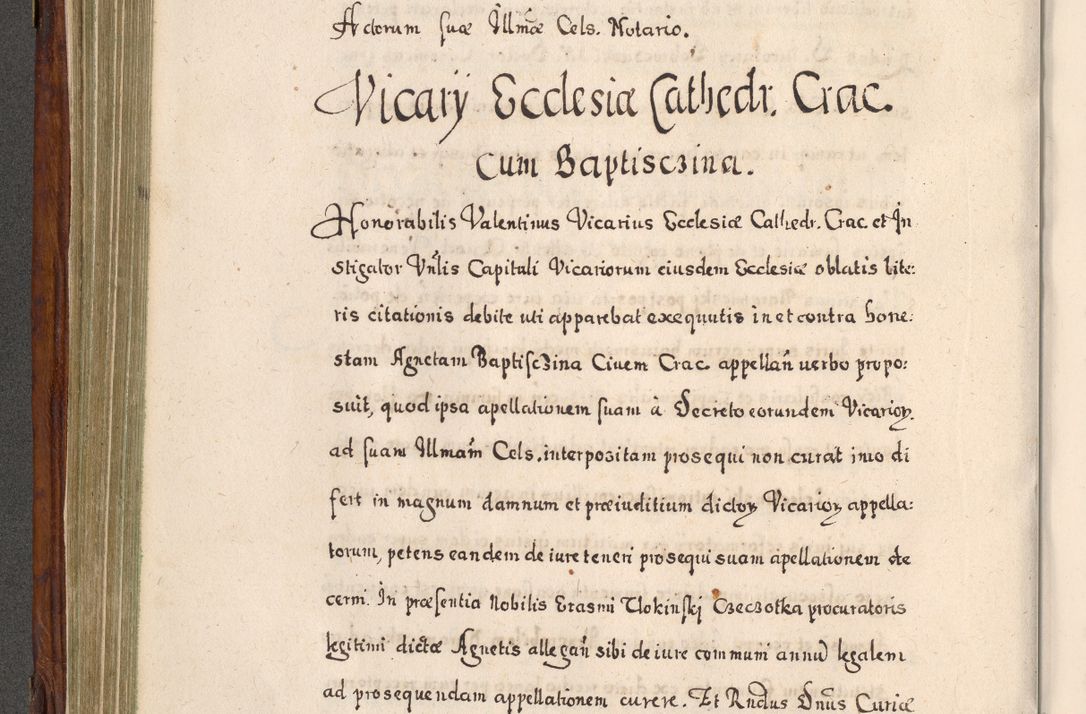 Actorum suæ Illmæ Cels. Notario.
Vicarÿ Ecclesiæ Cathedr. Crac.
Cum Baptisczina.
Honorabilis Valentinus Vicarius Ecclesiæ Cathedr. Crac. et In
stigator Vnlis Capituli Vicariorum eiusdem Ecclesiæ oblatis lite:
ris citationis debite uti apparebat exequutis in et contra hone:
stam Agnetam Baptisczina Ciuem Crac. appellan̄ uerbo propo:
suit, quod ipsa apellationem suam à Decreto eorundem Vicarioꝝ.
ad suam Illmam̄ Cels. interpositam prosequi non curat imo di
fert in magnum damnum et præiuditium dictoꝝ Vicarioꝝ appella:
torum, petens eandem de iure teneri prosequi suam apellationem de
cerni. In præsentia Nobilis Erasmi Tlokinskj Czeczotka procuratoris
legitimi dictæ Agnetis allegan̄ sibi de iure communi annū legalem
ad prosequendam appellationem curere. Et Rndus Dnūs Curiæ